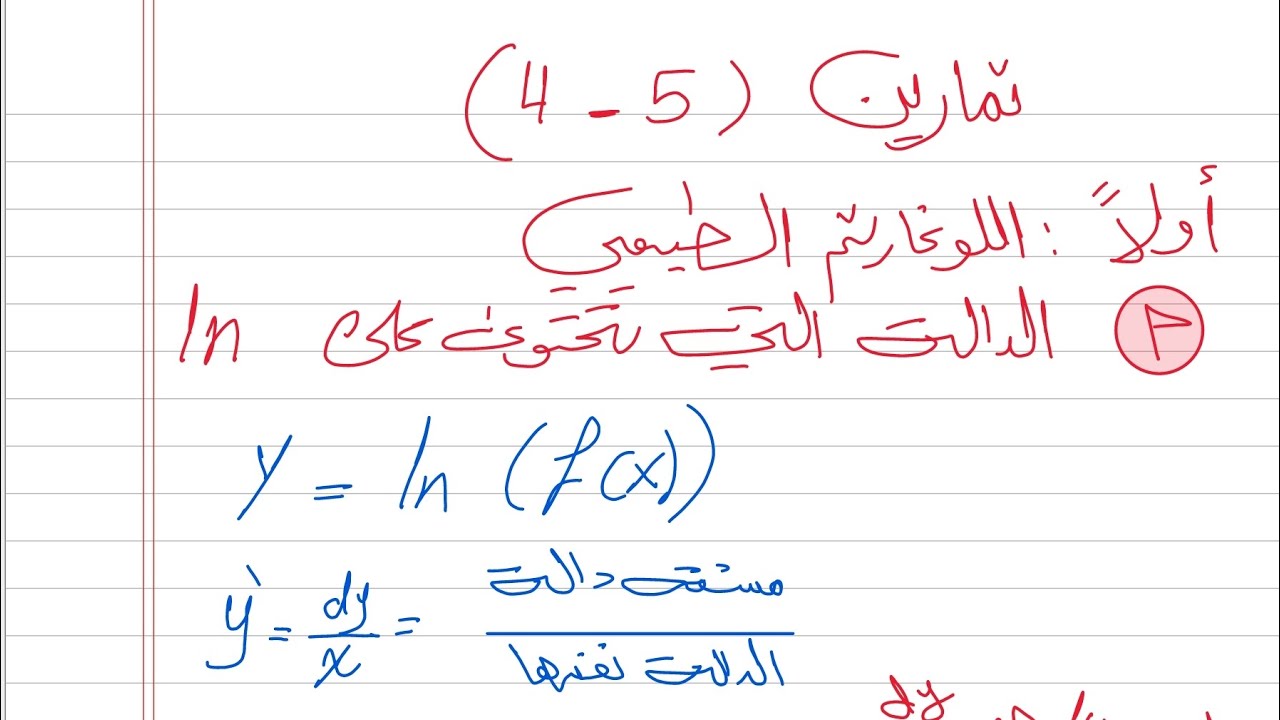 تمارين (4 - 5)
أولاً : اللوغاريتم الطبيعي
الدالة التي تحتوي على ln
y = ln (f(x))
y' = dy/x = مشتقة دالة / الدالة نفسها
dy